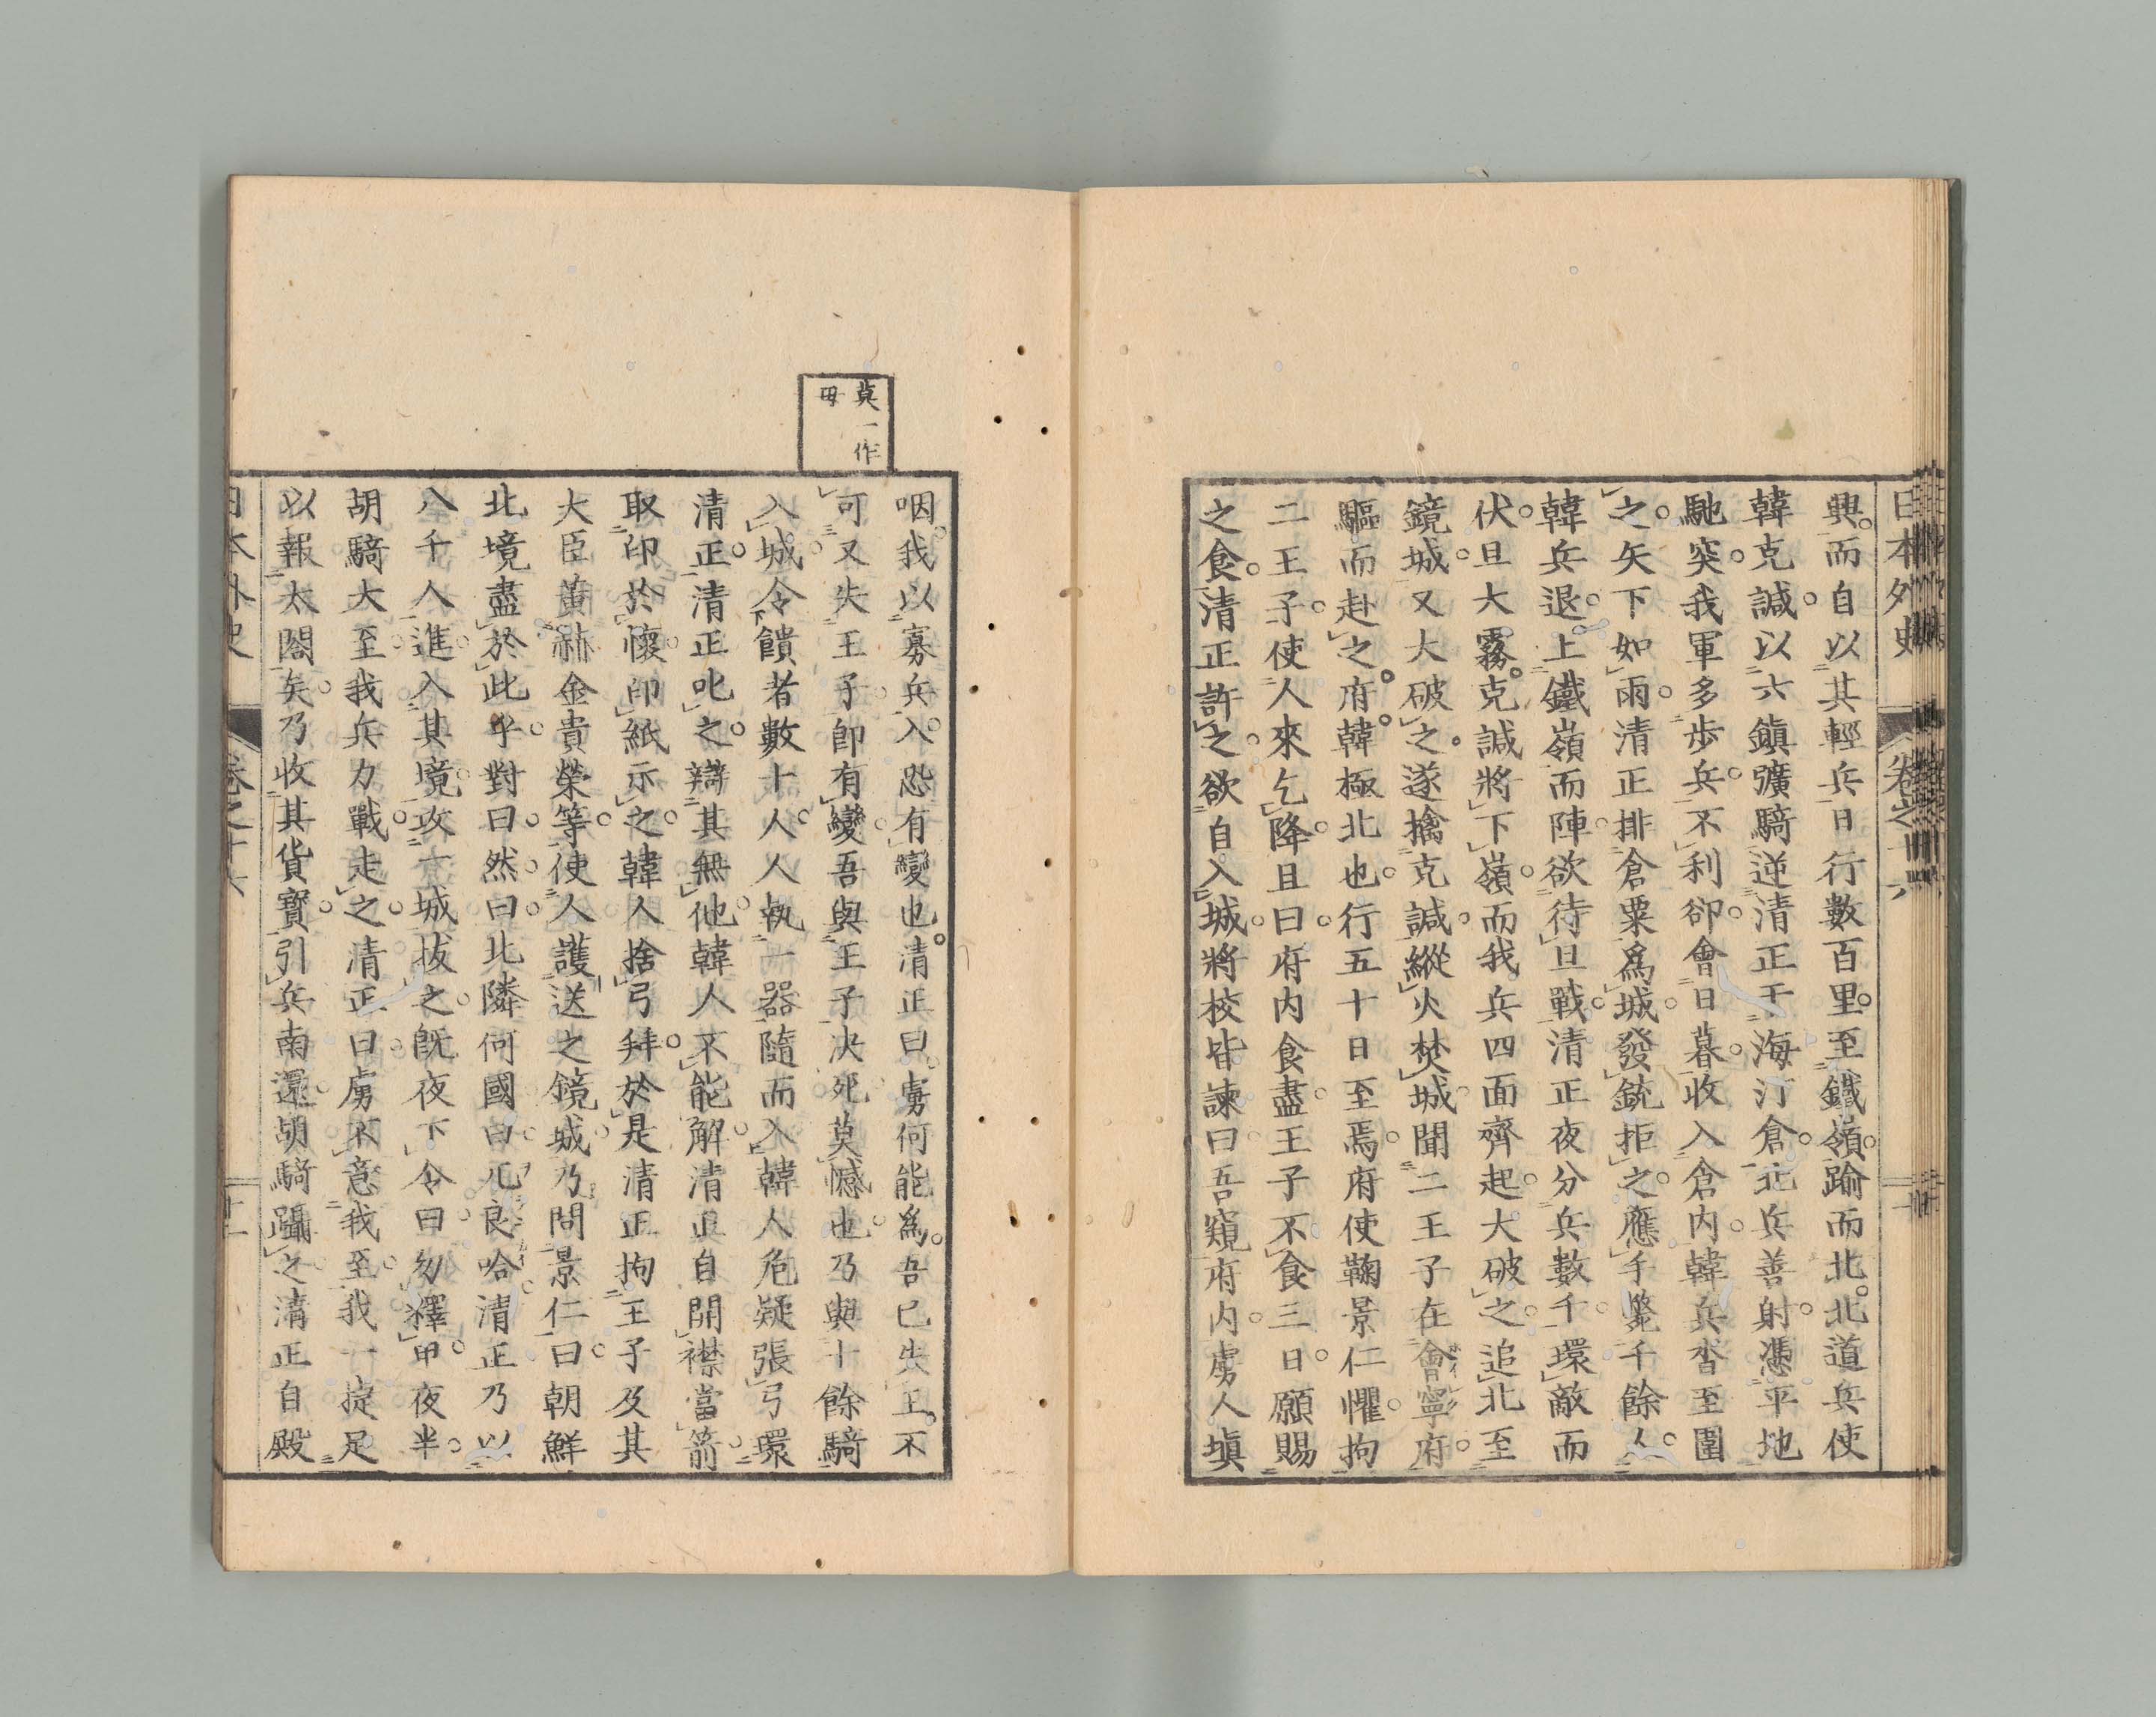 日本外史 卷之十六
興。而自以其輕兵日行數百里。至鐵嶺。踰而北。北道兵使
韓克諴。以六鎮彍騎逆清正于海汀倉。北兵善射。憑平地
馳突。我軍多步兵。不利卻。會日暮。收入倉内。韓兵沓至圍
之。矢下如雨。清正排倉粟爲城。發銃拒之。應手斃千餘人。
韓兵退。上鐵嶺而陣。欲待旦戰。清正夜分兵數千。環敵而
伏。旦大霧。克諴將下嶺。而我兵四面齊起。大破之。追北至
鏡城。又大破之。遂擒克諴。縱火焚城。聞二王子在會寧府。
驅而赴之。府韓極北也。行五十日至焉。府使鞠景仁懼。拘
二王子。使人來乞降。且曰。府内食盡。王子不食三日。願賜
之食。清正許之。欲自入城。將校皆諫曰。吾窺府内。虜人塡
咽。我以寡兵入。恐有變也。清正曰。虜何能爲。吾已失王。不
可又失王子。卽有變。吾與王子決死。莫憾也。乃與十餘騎
入城。令饋者數十人。人執一器。隨而入。韓人危疑。張弓環
清正。清正叱之。辯其無他。韓人不能解。清正自開襟當箭。
取印於懷。印紙示之。韓人捨弓拜。於是清正拘王子及其
大臣黃赫金貴榮等。使人護送之鏡城。乃問景仁曰。朝鮮
北境盡於此乎。對曰。然。曰。北隣何國。曰。兀良哈。清正乃以
八千人進入其境。攻一城拔之。既夜。下令曰。勿釋甲。夜半。
胡騎大至。我兵力戰走之。清正曰。虜不意我至。我一捷足
以報太閤矣。乃收其貨寳。引兵南還。胡騎躡之。清正自殿
莫一作
毋
日本外史 卷之十六 十一